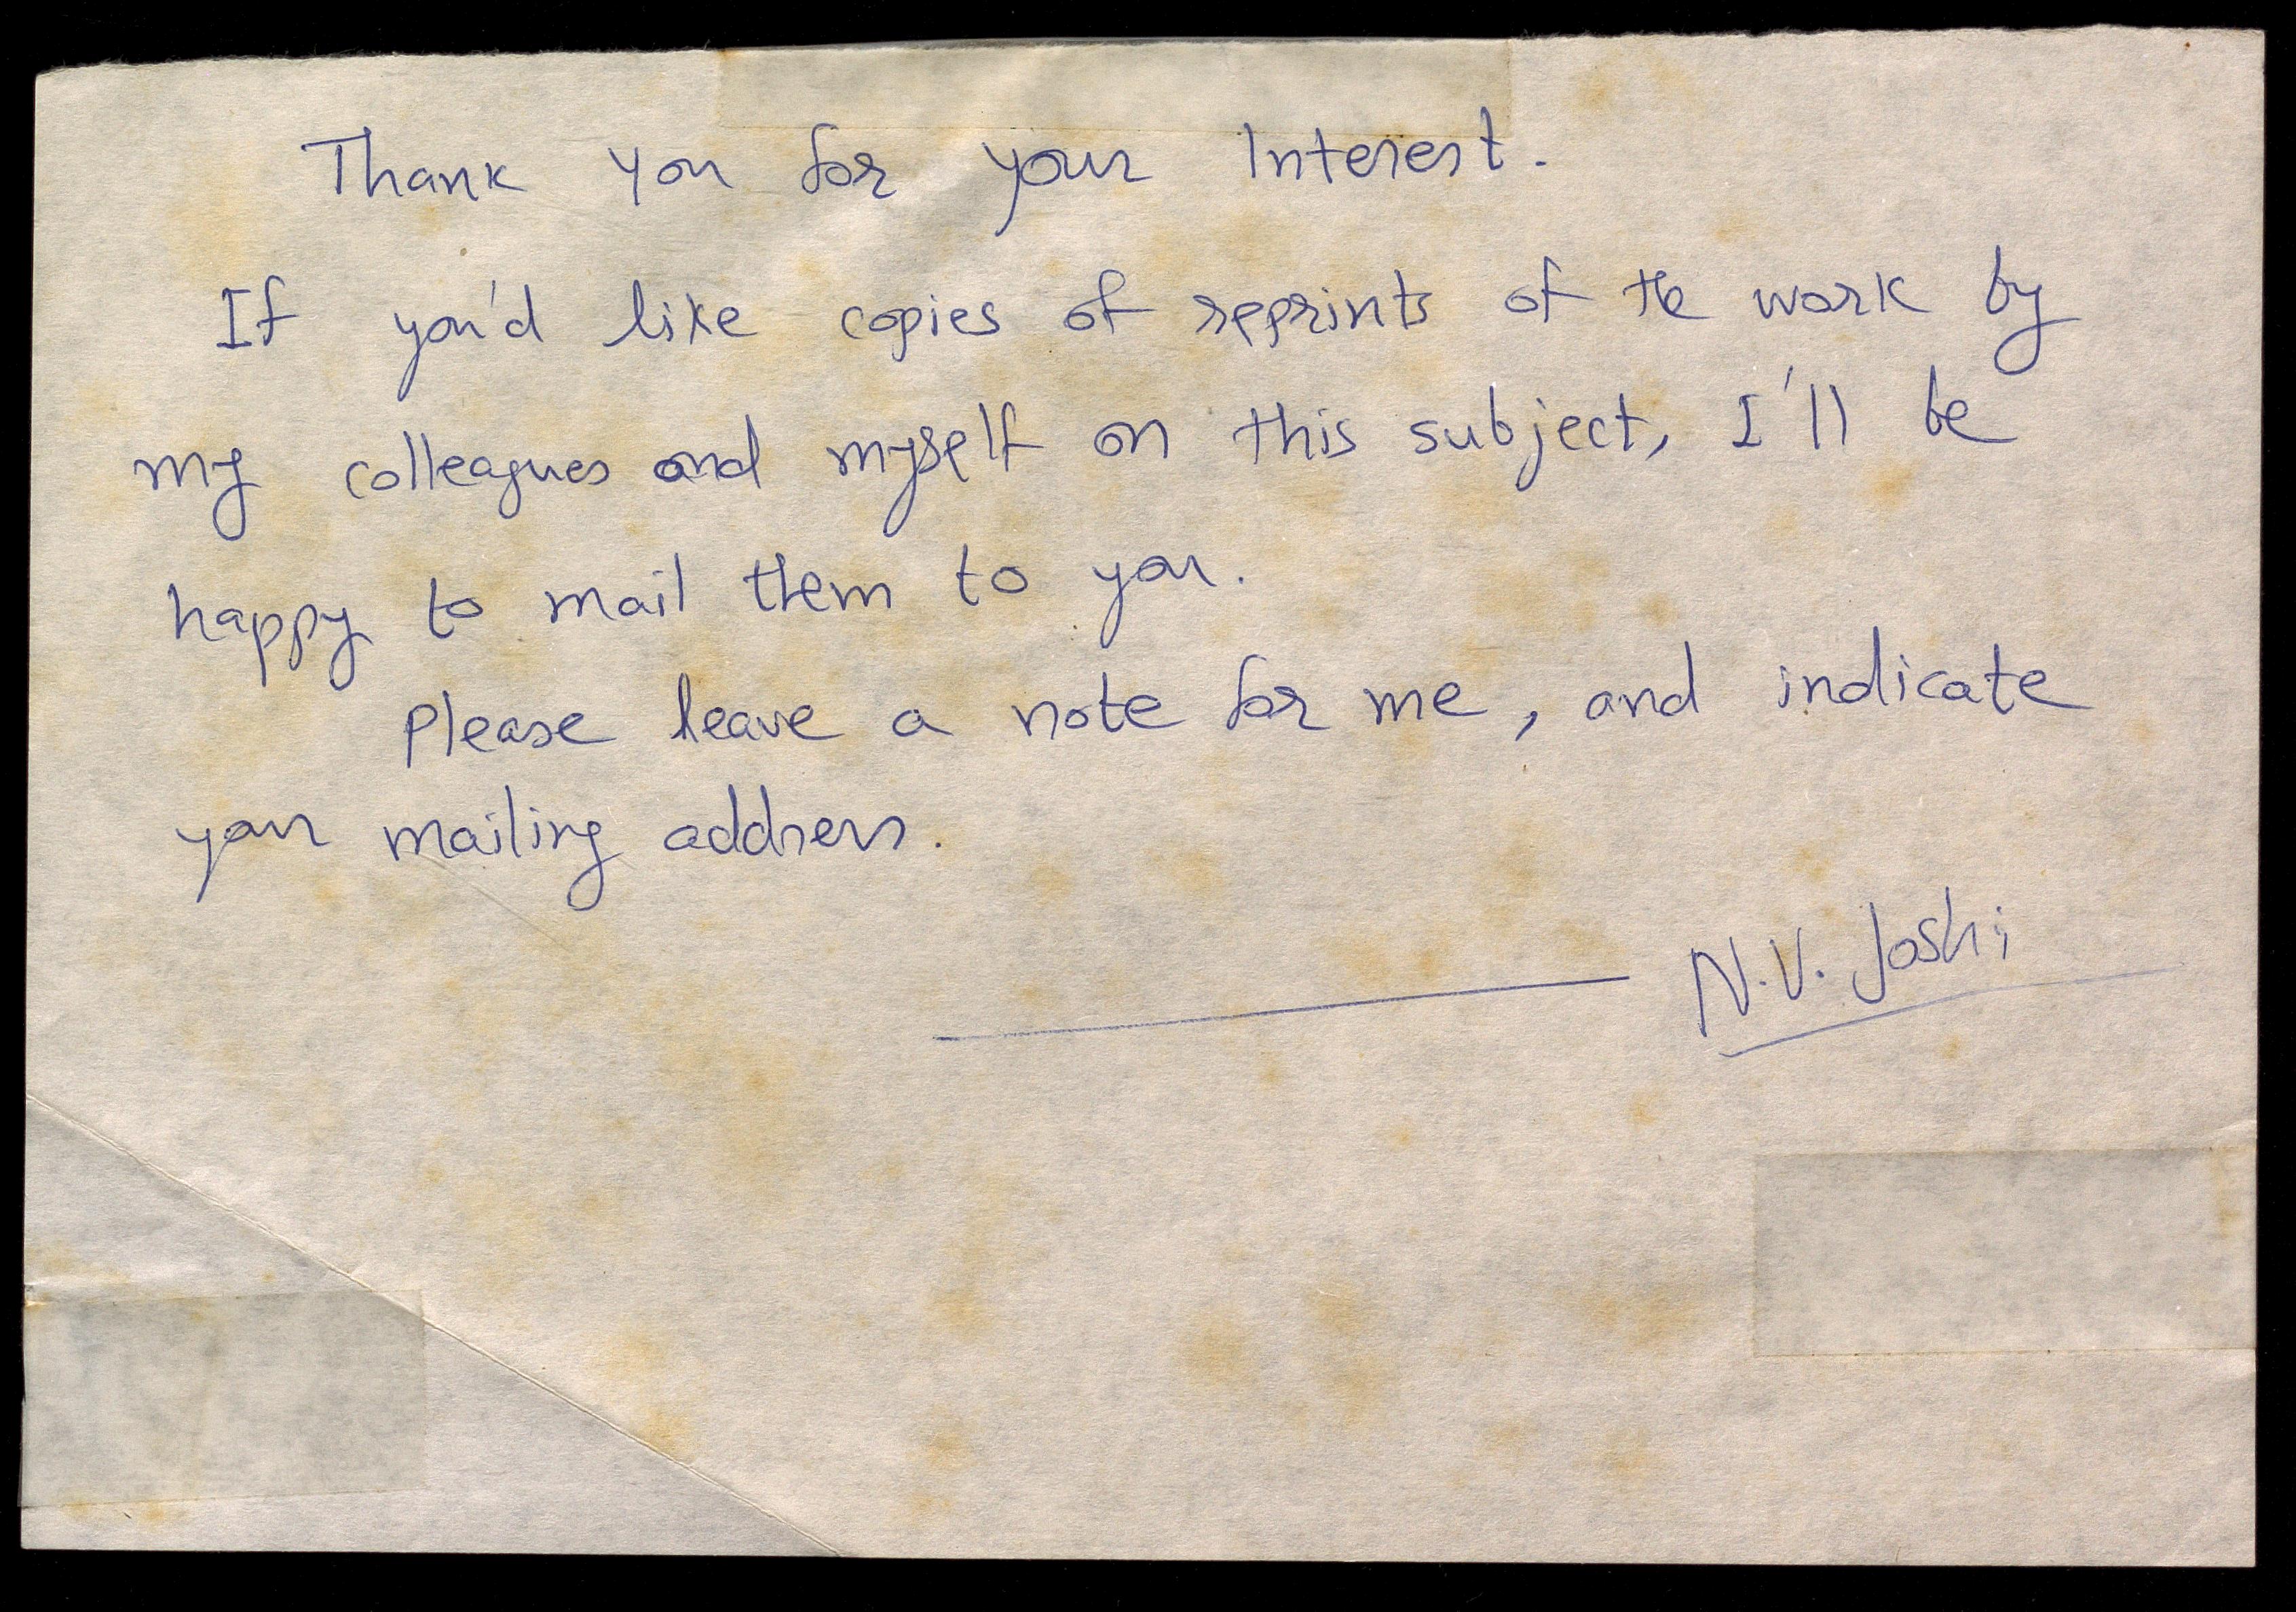 Thank you for your Interest.
If you'd like copies of reprints of the work by
my colleagues and myself on this subject, I'll be
happy to mail them to you.
Please leave a note for me, and indicate
your mailing address.
N.V. Joshi